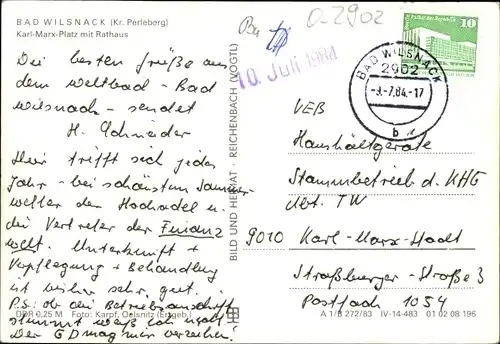 BAD WILSNACK (Kr. Perleberg)
Karl-Marx-Platz mit Rathaus
Die besten Grüße aus
dem Weltbad - Bad
Wilsnack - sendet
H. Schnieder
Hier trifft sich jedes
Jahr - bei schönstem Sommer-
wetter der Hochadel u.
die Vertreter der Finanz
welt. Unterkunft +
Verpflegung + Behandlung
ist bisher sehr gut.
P.S: ob die Betriebsanschrift
stimmt weiß ich nicht.
Der GD mag mir verzeihen!
DDR 0,25 M Foto: Karpf, Oelsnitz (Erzgeb.)
BILD UND HEIMAT · REICHENBACH (VOGTL)
0-2902
10. Juli 1984
BAD WILSNACK
2902
-9.-7.84.-17
b
10
VEB
Haushaltgeräte
Stammbetrieb d. KHG
Abt. TW
9010 Karl-Marx-Stadt
Straßburger-Straße 3
Postfach 1054
A 1/B 272/83 IV-14-483 01 02 08 196